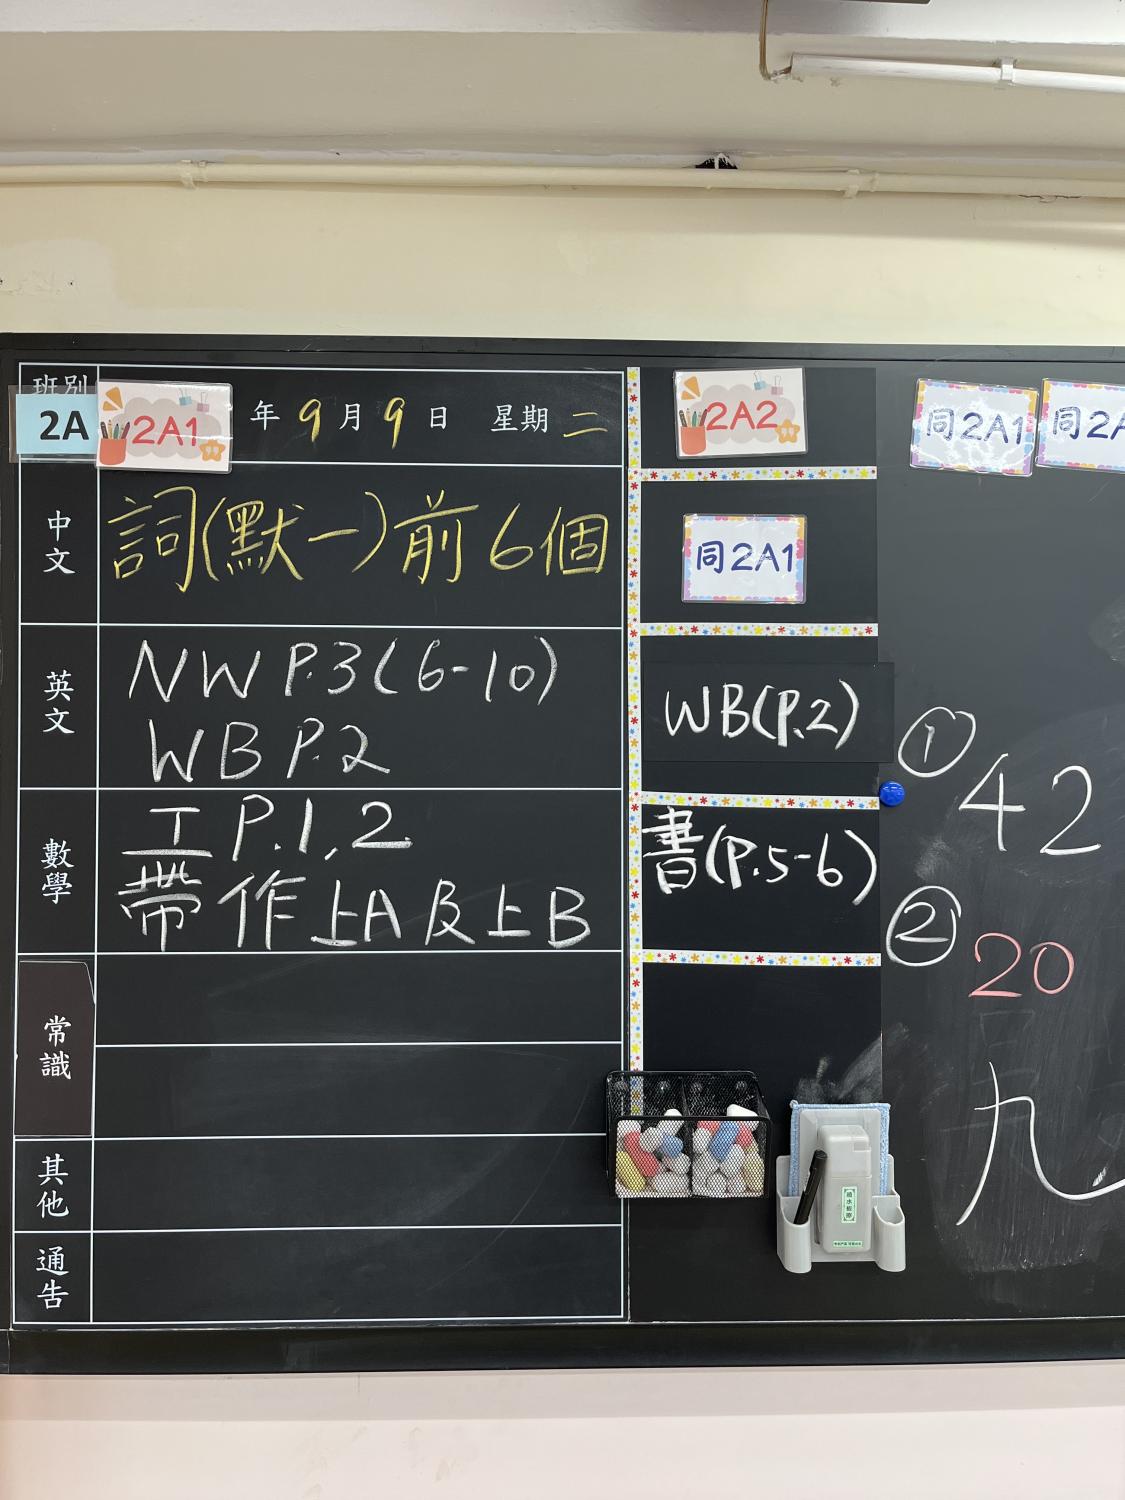 班別
2A
2A1
年 9 月 9 日 星期 二
中文
詞(默一)前 6 個
英文
NW P.3 (6-10)
WB P.2
數學
工 P.1, 2
帶 作 上A 及 上B
常識
其他
通告
2A2
同2A1
WB(P.2)
書(P.5-6)
同2A1
同2A
① 42
② 20
九